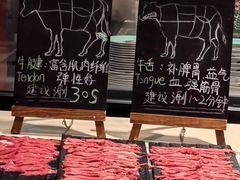 牛腱:富含肌肉纤维
Tendon 弹性好
建议涮 30S
牛舌:补脾胃益气
Tongue 血强筋骨
建议涮1~2分钟